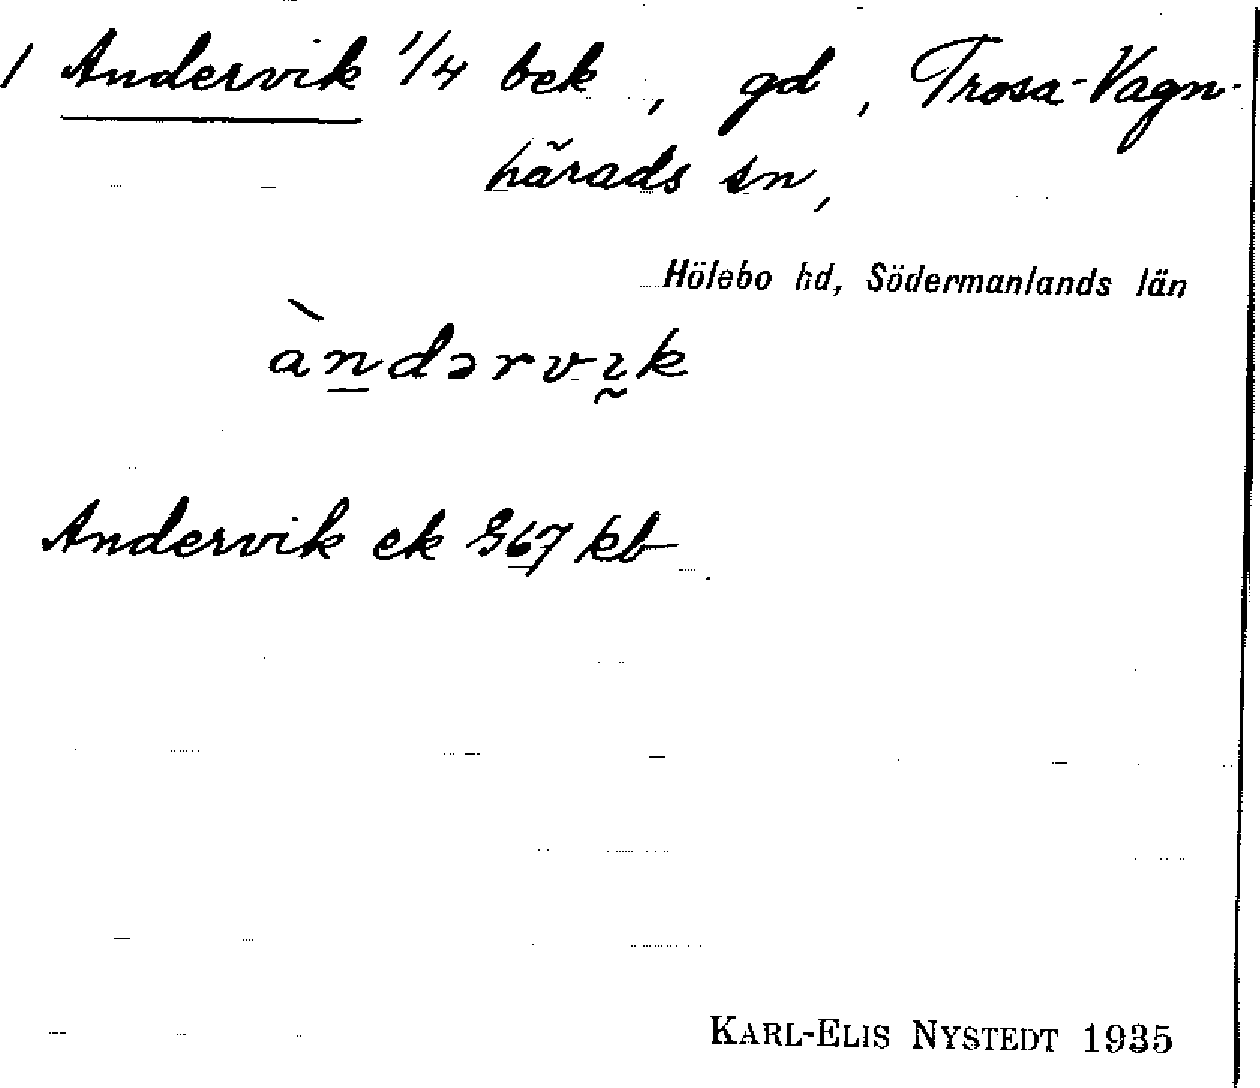 1 Andervik 1/4 bek , gd , Trosa-Vagn-
härads sn,
Hölebo hd, Södermanlands län
àndərvık
Andervik ek G67 kb
KARL-ELIS NYSTEDT 1935